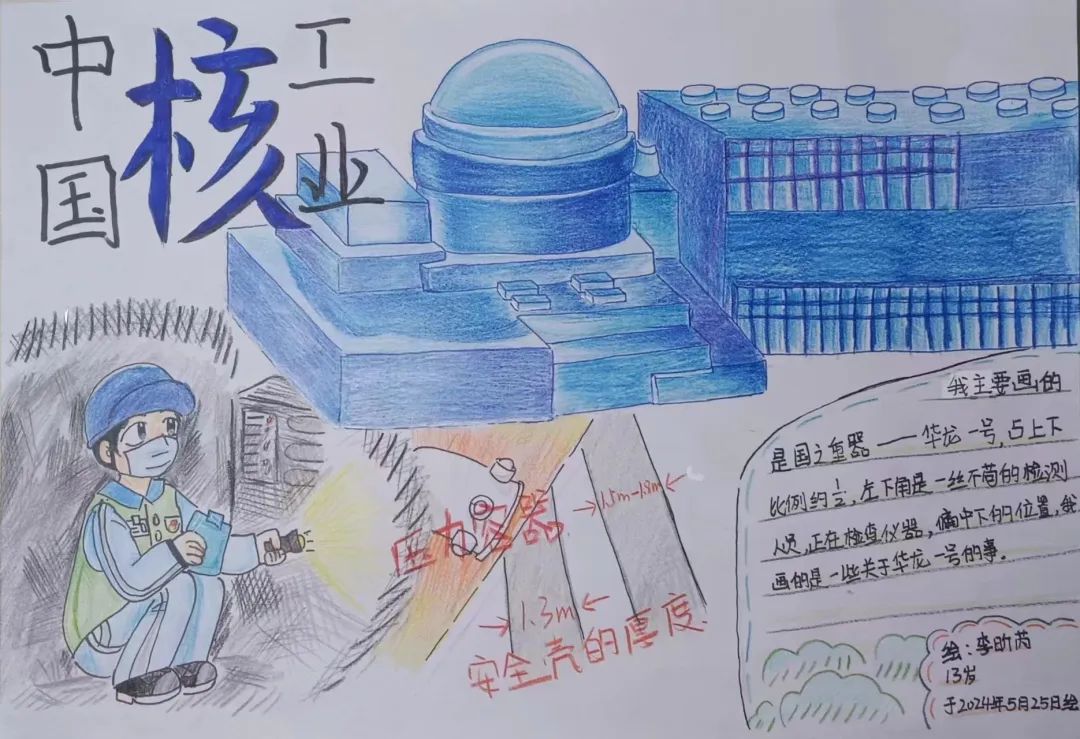 中国
核
工业
压力容器
1.5m-1.8m
1.3m
安全壳的厚度
我主要画的
是国之重器——华龙一号,占上下
比例约½,左下角是一丝不苟的检测
人员,正在检查仪器,偏中下的位置,我
画的是一些关于华龙一号的事。
绘:李昕芮
13岁
于2024年5月25日绘